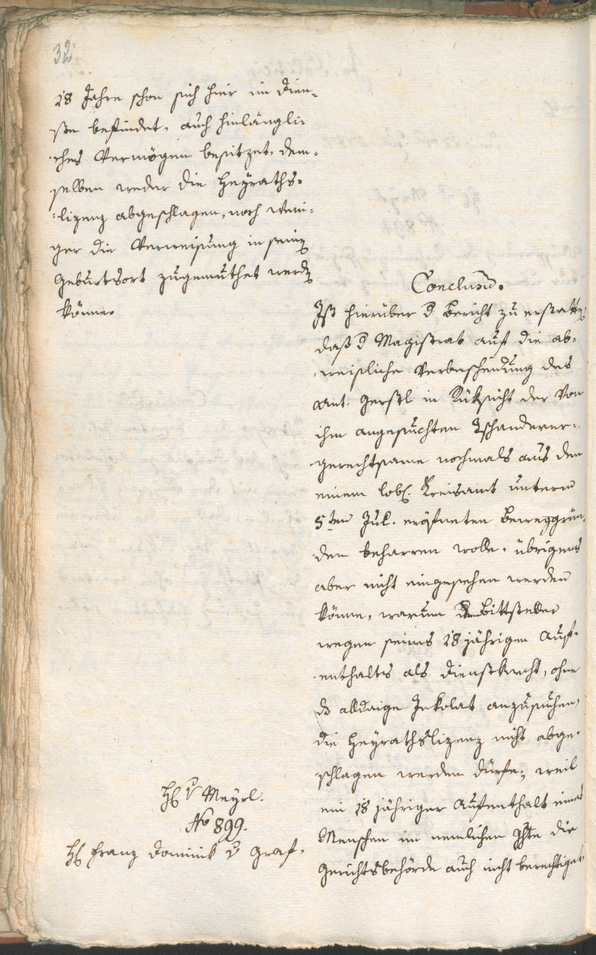 32.
18 Jahre schon sich hier im Dien-
ste befindet, auch hinlängli
ches Vermögen besitzet, dem-
selben weder die Heyraths-
lizenz abgeschlagen, noch weni-
ger die Verweisung in sein
Geburtsort zugemuthet werd
könne.
Conclusū.
Ist hierüber d Bericht zu erstatten,
daß d Magistrat auf die ab-
weisliche Verbescheidung des
Ant. Gerstl in Rüksicht der von
ihm angesuchten
gerechtsame nochmals aus den
einem löbl. Kreisamt unterm
5ten Jul. eröfneten Beweggrün-
den beharren wolle. übrigens
aber nicht eingesehen werden
könne, warum Bittsteller
wegen seines 18 jährigen Auf-
enthalts als Dienstknecht, ohne
ds alldaige Inkolat anzusuchen,
die Heyrathslizenz nicht abge-
schlagen werden dürfe, weil
ein 18 jähriger Aufenthalt eines
Menschen im nemlichen Ghte die
Gerichtsbehörde auch nicht berechtiget
H v Meyrl.
No 899.
H Franz Dominik v Graf-